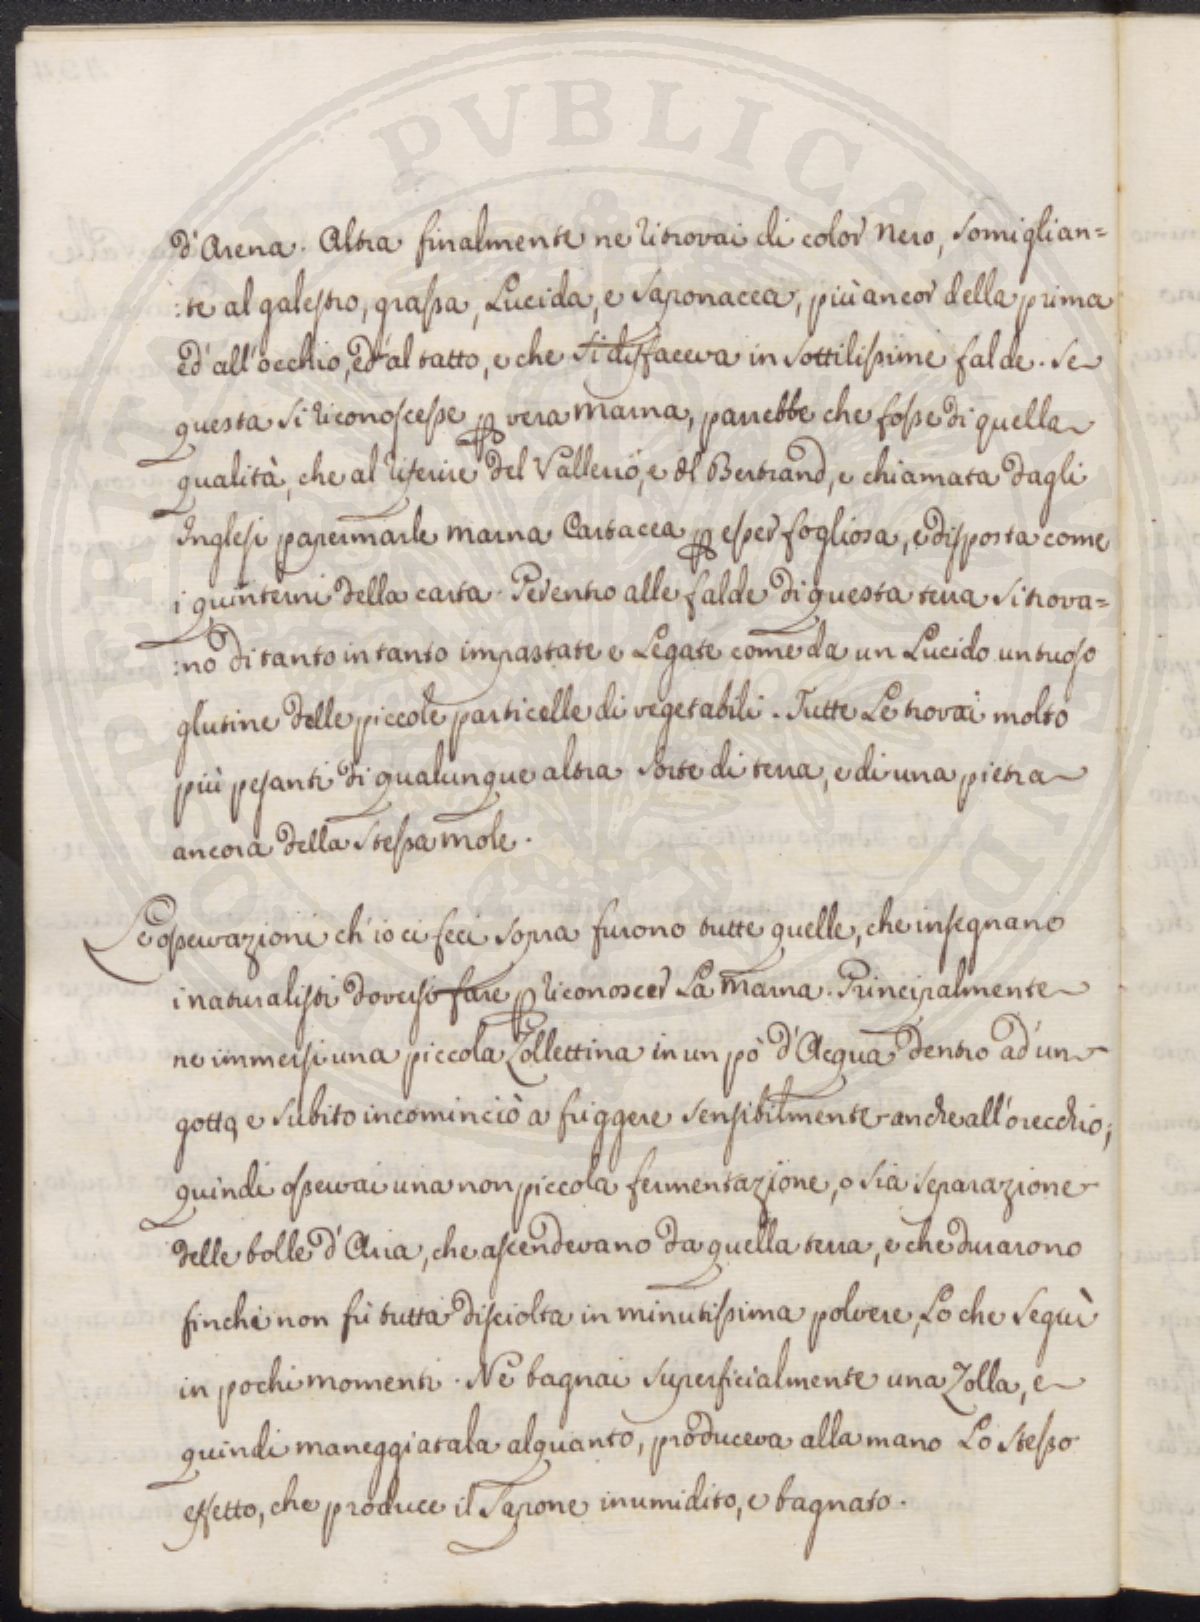 PVBLICA
PROPERTAT
INGENI DI
d'Arena. Altra finalmente ne ritrovai di color nero, somiglian=
:te al galestro, grassa, Lucida, e saponacea, più ancor della prima
ed all'occhio, ed al tatto, e che si disfaceva in sottilissime falde. Se
questa si riconoscesse p vera marna, parrebbe che fosse di quella
qualità, che al riferire del Vallerio, e del Bertrand, e chiamata dagli
Inglesi papermarle marna Cartacea p esser fogliosa, e disposta come
i quinterni della carta. Perentro alle falde di questa terra si trova=
:no di tanto in tanto impastate e Legate come da un Lucido untuoso
glutine delle piccole particelle di vegetabili. Tutte Le trovai molto
più pesanti di qualunque altra sorte di terra, e di una pietra
ancora della stessa mole.
Le osservazioni ch'io ci feci sopra furono tutte quelle, che insegnano
i naturalisti doversi fare p riconoscer La marna. Principalmente
ne immersi una piccola Zollettina in un pò d'Acqua dentro ad un
gotto, e subito incominciò a friggere sensibilmente anche all'orecchio;
quindi osservai una non piccola fermentazione, o sia separazione
delle bolle d'Aria, che ascendevano da quella terra, e che durarono
finche non fù tutta disciolta in minutissima polvere, Lo che seguì
in pochi momenti. Ne bagnai superficialmente una Zolla, e
quindi maneggiatala alquanto, produceva alla mano Lo stesso
effetto, che produce il Sapone inumidito, e bagnato.